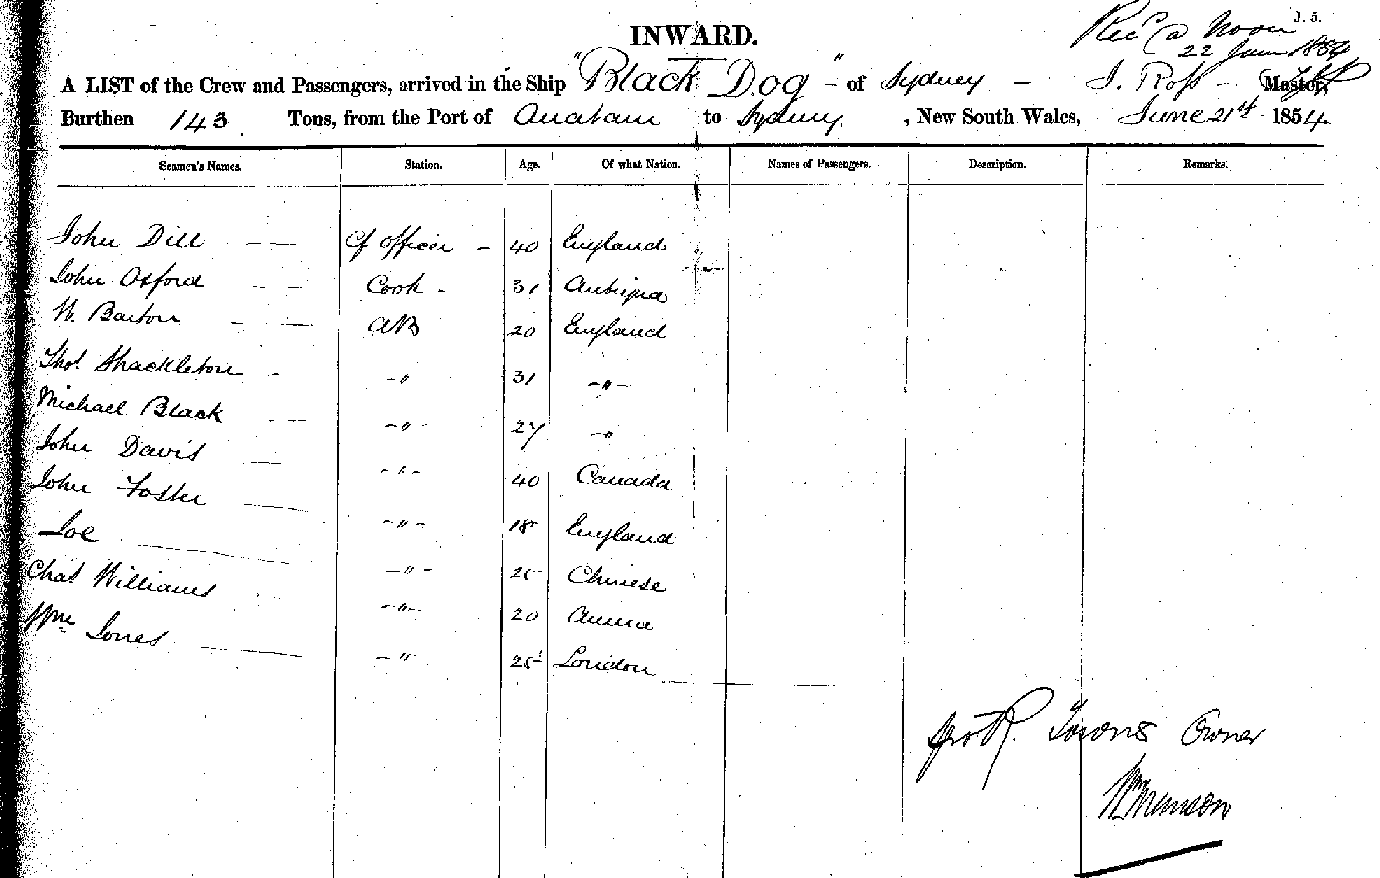 J. 5.
INWARD.
Rec'd @ Noon
22 June 1854
A LIST of the Crew and Passengers, arrived in the Ship "Black Dog" - of Sydney - J. Ross - Master,
Burthen 143 Tons, from the Port of Anatam to Sydney, New South Wales, June 21st 1854
Seamen's Names. Station. Age. Of what Nation. Names of Passengers. Description. Remarks.
John Dill Cf officer - 40 England
John Oxford Cook - 31 Antigua
W. Barton AB 20 England
Thos Shackleton - -"- 31 -"-
Michael Black -"- 27 -"
John Davis -"- 40 Canada
John Foster -"- 18 England
Joe -"- 25 Chinese
Chas Williams -"- 20
Wm Jones -" 25 London
R. Towns Owner